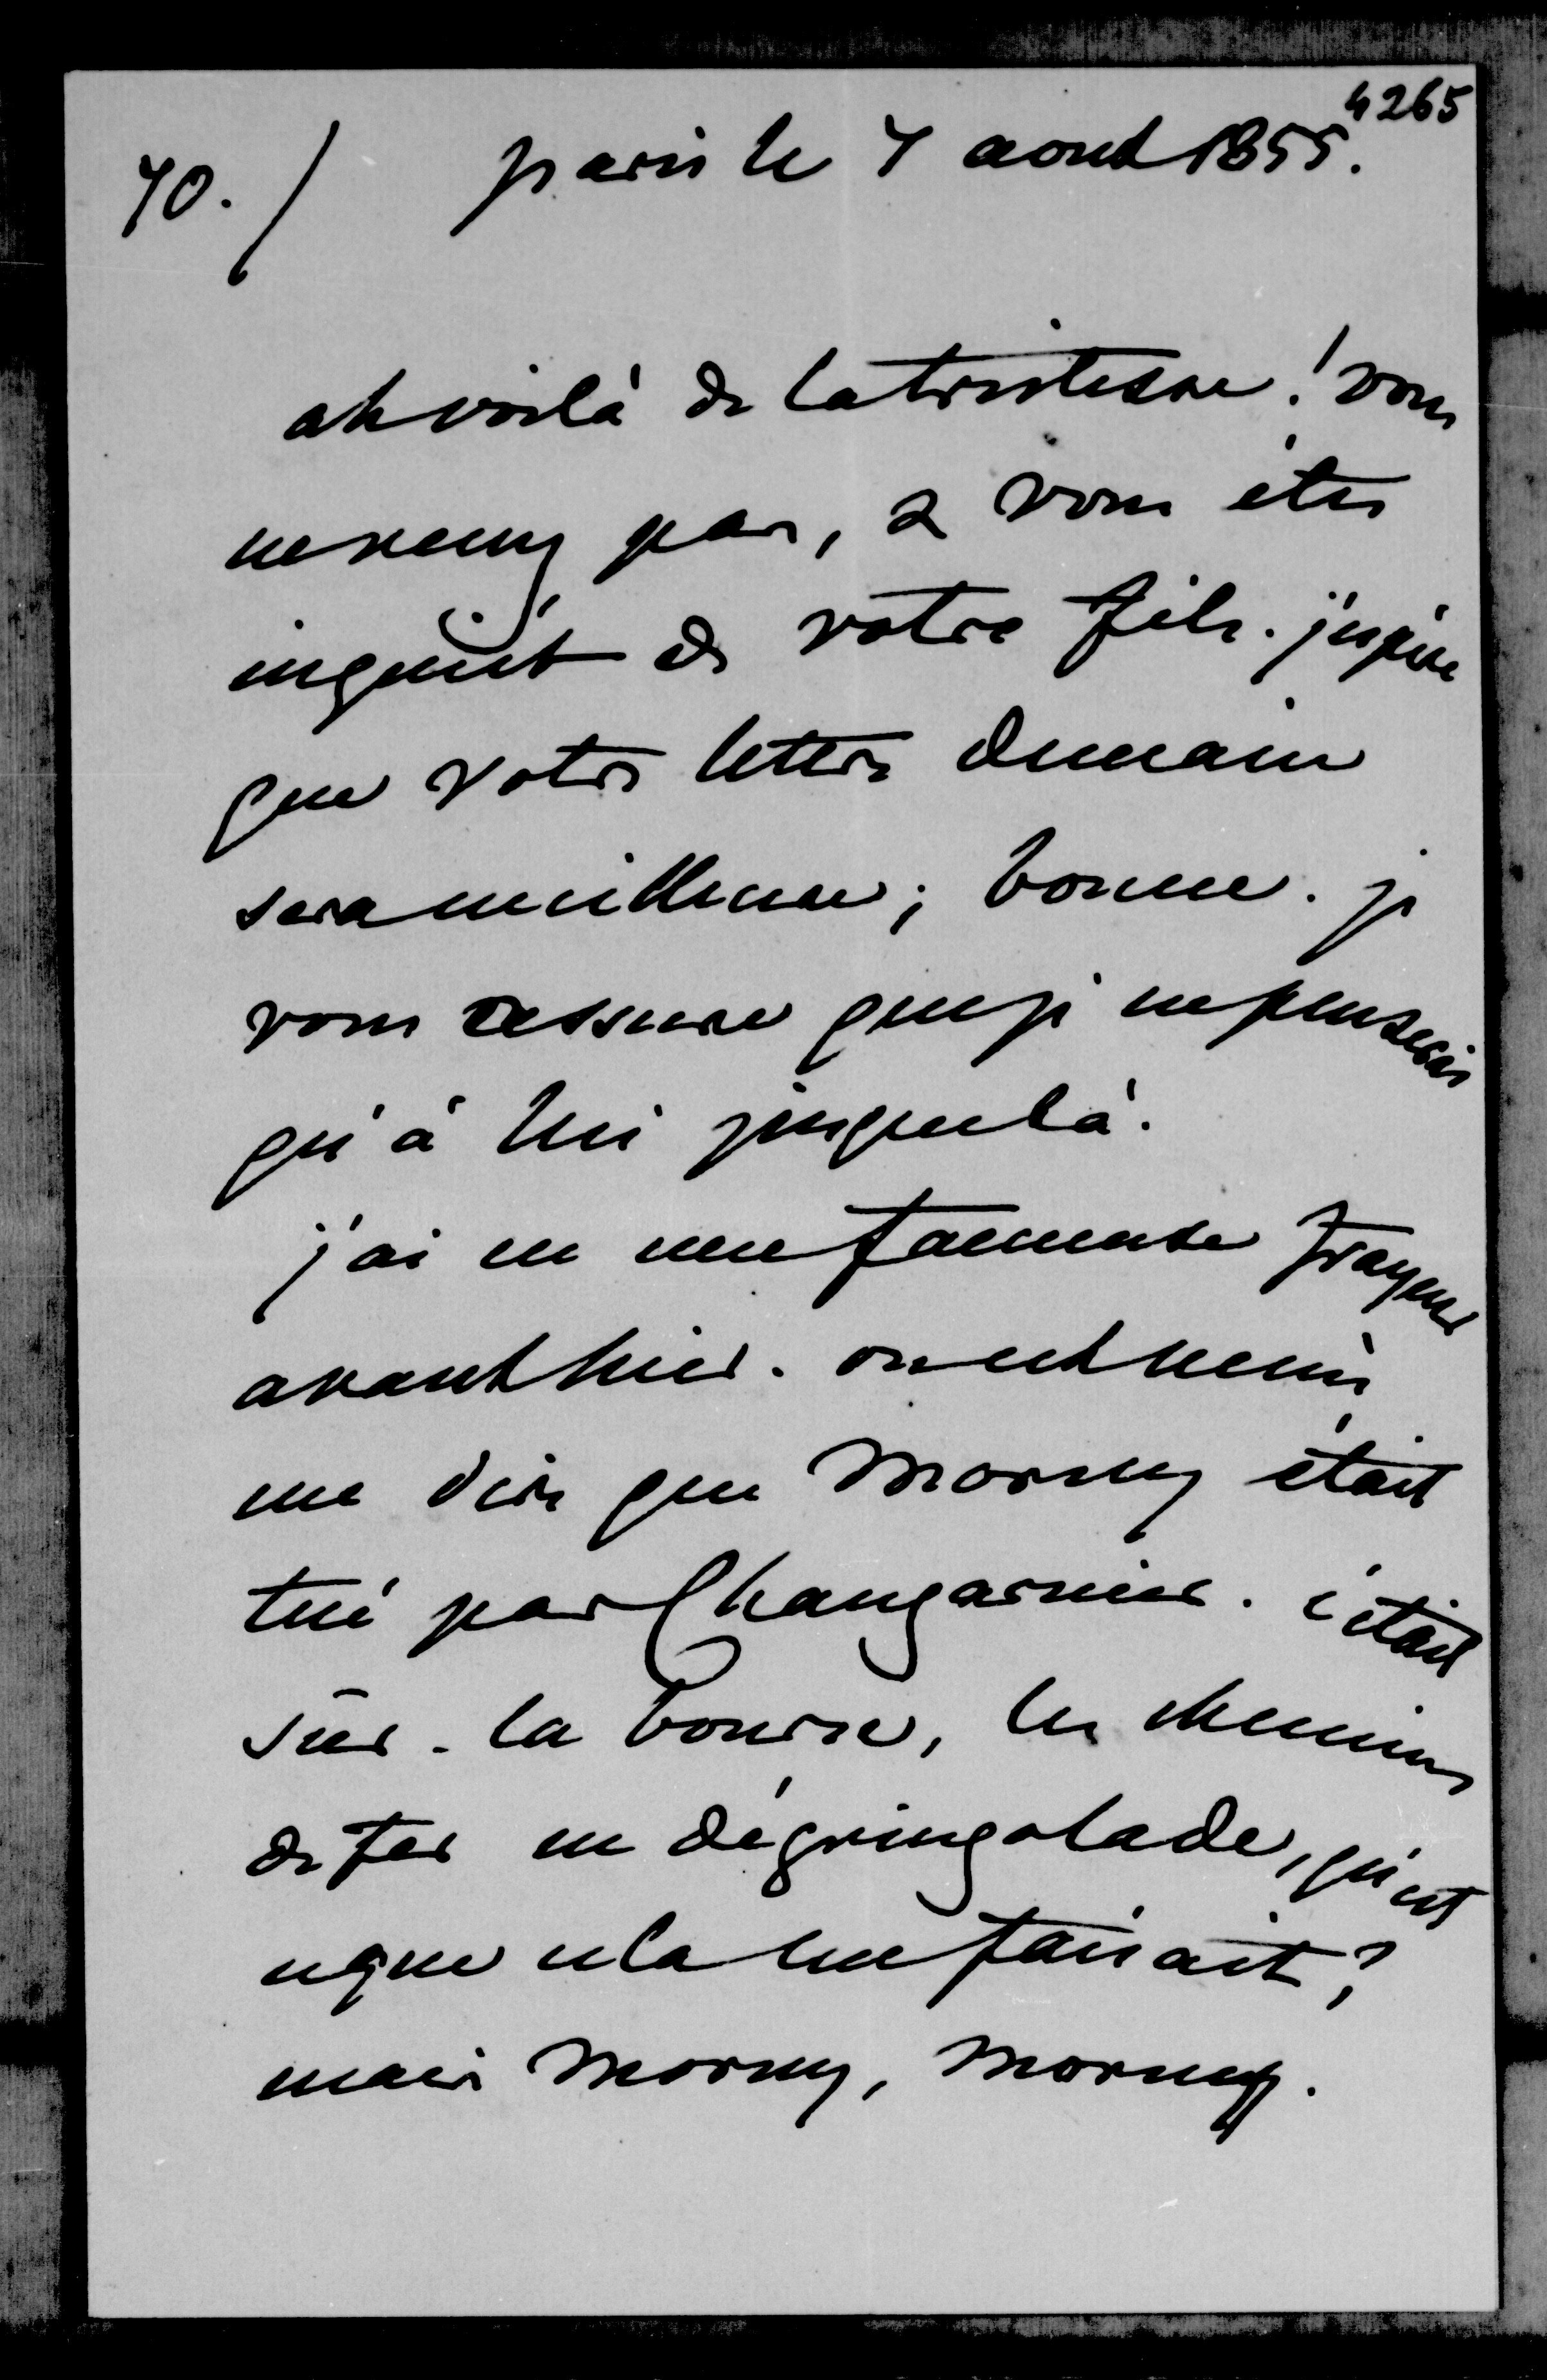 4265
70./ paris le 7 aout 1855.
ah voilà de la tristesse ! vous
ne venez pas, & vous êtes
inquiét de votre fils. j'espère
que votre lettre demain
sera meilleure ; bonne. je
vous assure que je ne penserai
qu'à lui jusque là.
j'ai eu une fameuse frayeur
avant hier. on est venu
me dire que Morny était
tué par Changarnier. c'était
sûr. la bourse, les chemins
de fer en dégringolade, qu'est
ce que cela me faisait ?
mais Morny, Morny.